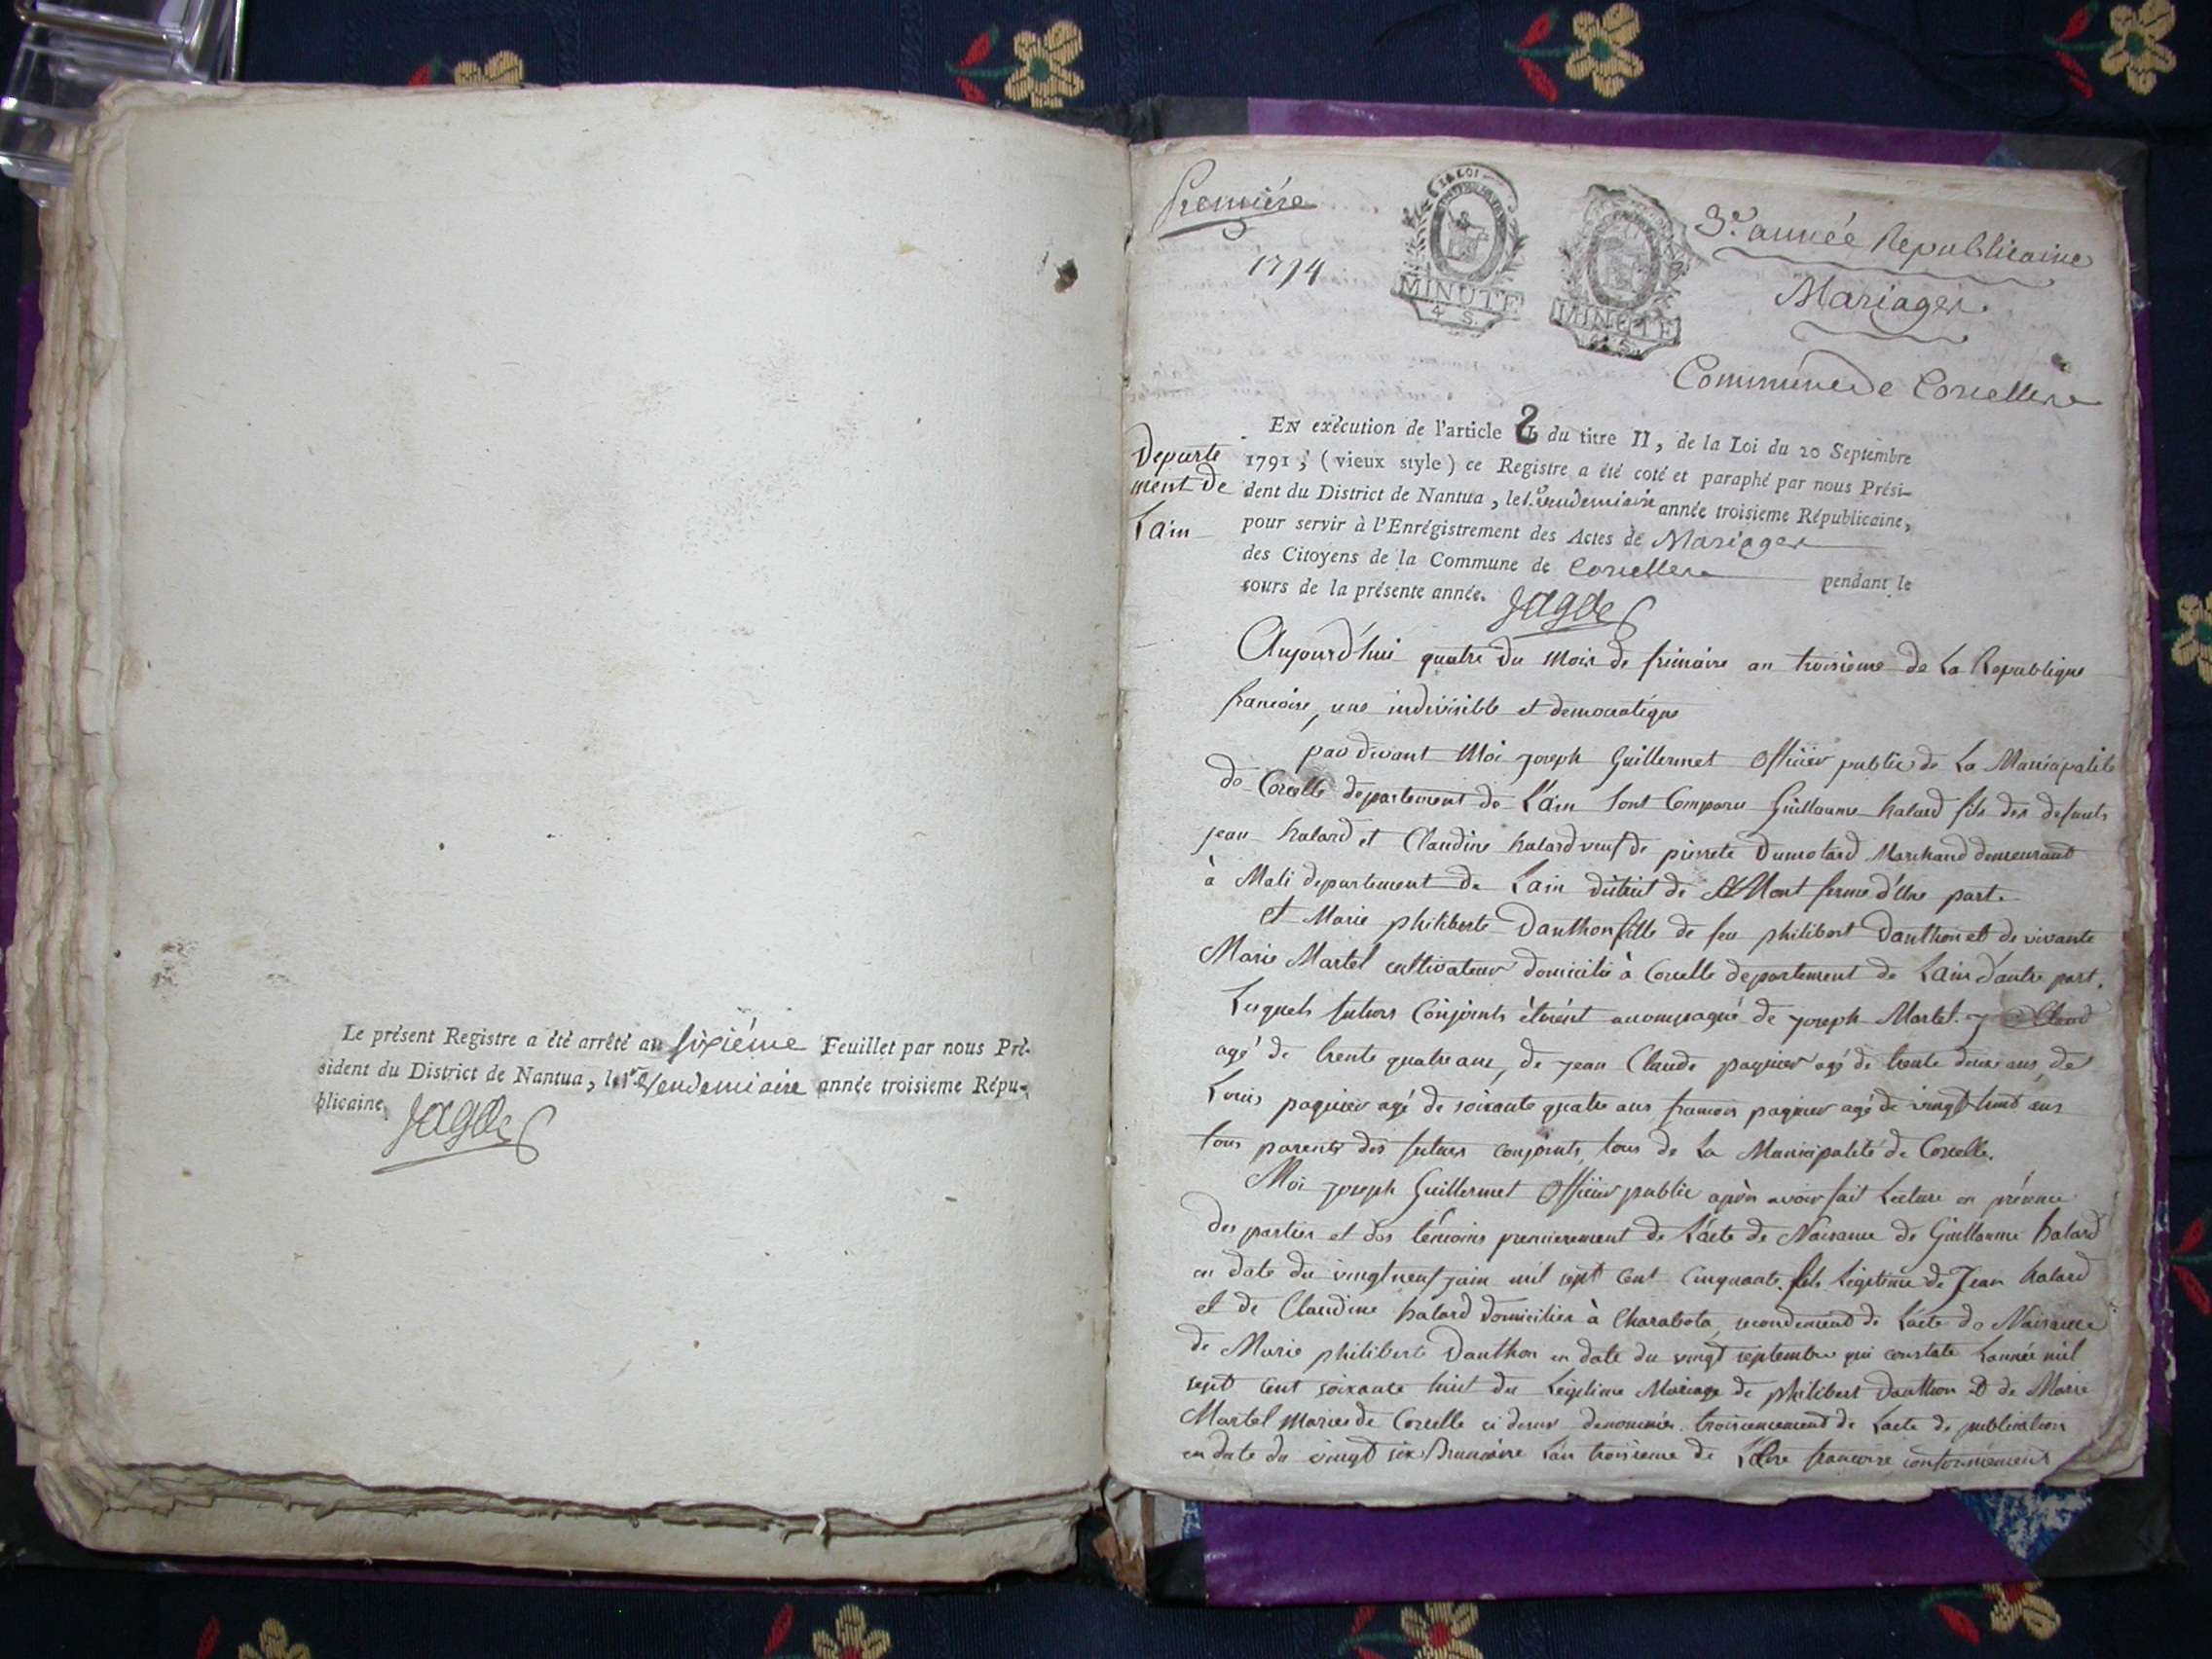 Le présent Registre a été arrêté au sixième Feuillet par nous Pré-
sident du District de Nantua, le 1er Vendemiaire année troisieme Répu-
blicaine.
Jagot
Première
1794
LA LOI
MINUTE
4 S.
MINUTE
3e. année Republicaine
Mariages.
Commune de Corcelles
Departe
ment de
Lain
EN exécution de l'article 2 du titre II, de la Loi du 20 Septembre
1791, (vieux style) ce Registre a été coté et paraphé par nous Prési-
dent du District de Nantua, le 1er vendemiaire année troisieme Républicaine,
pour servir à l'Enrégistrement des Actes de Mariages
des Citoyens de la Commune de Corcelles pendant le
cours de la présente année.
Aujourd'hui quatre du Mois de frimaire an troisieme de La Republique
francoise, une indivisible et democratique
par devant Moi joseph Guillermet Officier public de La Municipalité
de Corcelle departement de L'ain sont Comparu Guillaume halard fils des defunts
jean halard et Claudine halard veuf de pierrete Dumotard Marchand demeurant
à Mali departement de Lain district de Mont ferme d'Une part.
et Marie philiberte Danthon fille de feu philibert Danthon et de vivante
Marie Martel cultivateur domicilié à Corcelle departement de Lain d'autre part.
Lesquels futurs Conjoints étoient accompagné de joseph Martel
agé de trente quatre ans, de jean Claude paquier agé de trente deux ans, de
Louis paquier agé de soixante quatre ans francois paquier agé de vingt huit ans
tous parents des futurs conjoints, tous de La Municipalité de Corcelle.
Moi joseph Guillermet Officier public après avoir fait Lecture en présence
des parties et des témoins premierement de L'acte de Naisance de Guillaume halard
en date du vingt neuf juin mil sept cent Cinquante. fils Legitime de Jean halard
et de Claudine halard domiciliés à Charabota, secondement de L'acte de Naisance
de Marie philiberte Danthon en date du vingt septembre qui constate L'année mil
sept cent soixante huit du Legitime Mariage de philibert Danthon et de Marie
Martel Mariés de Corcelle ci dessus denommés. troisiemement de L'acte de publication
en date du vingt six Brumaire L'an troisieme de L'Ere francoise conformément